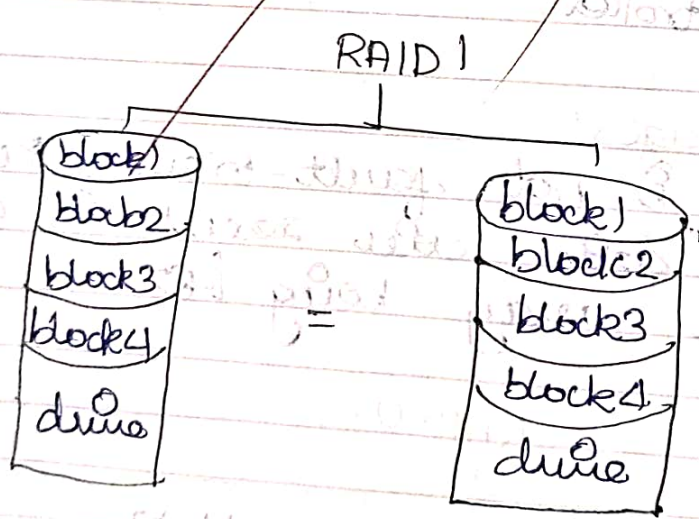 RAID 1
block1
block2
block3
block4
drive
=
block1
block2
block3
block4
drive